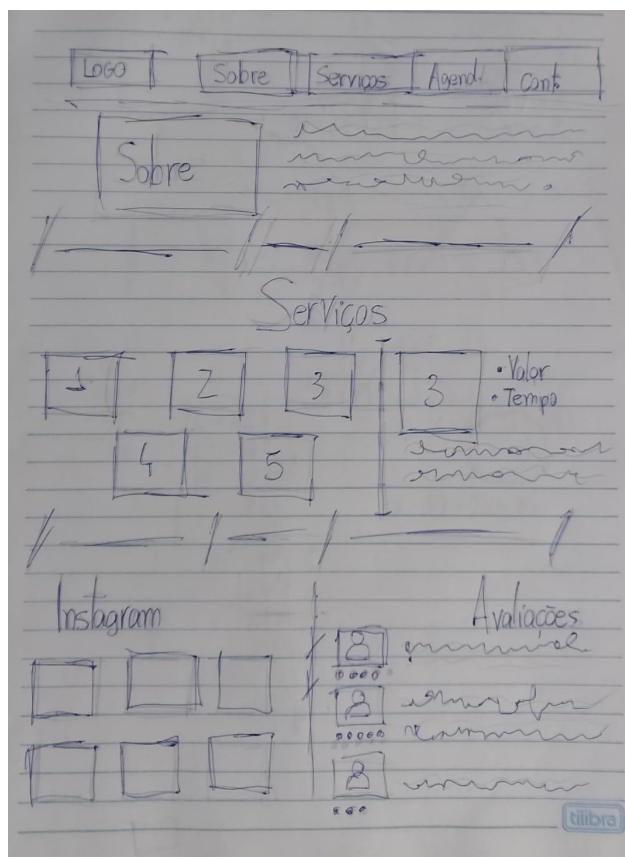 LOGO Sobre Serviços Agend. Cont.
Sobre
Serviços
1 2 3 3 • Valor
• Tempo
4 5
Instagram Avaliações
tilibra